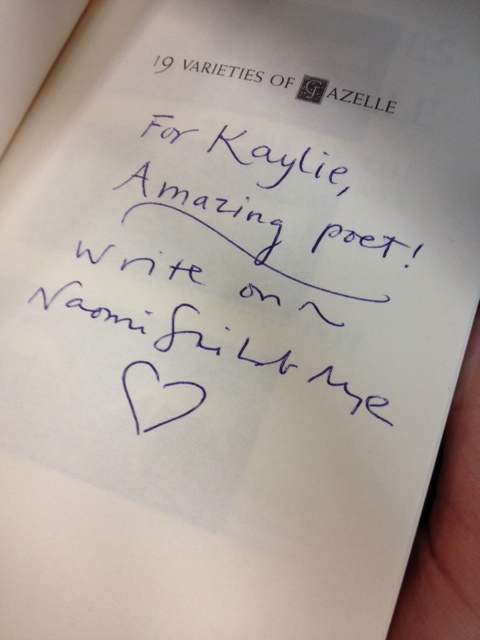 19 VARIETIES OF GAZELLE
For Kaylie,
Amazing poet!
Write on~
Naomi Shihab Nye